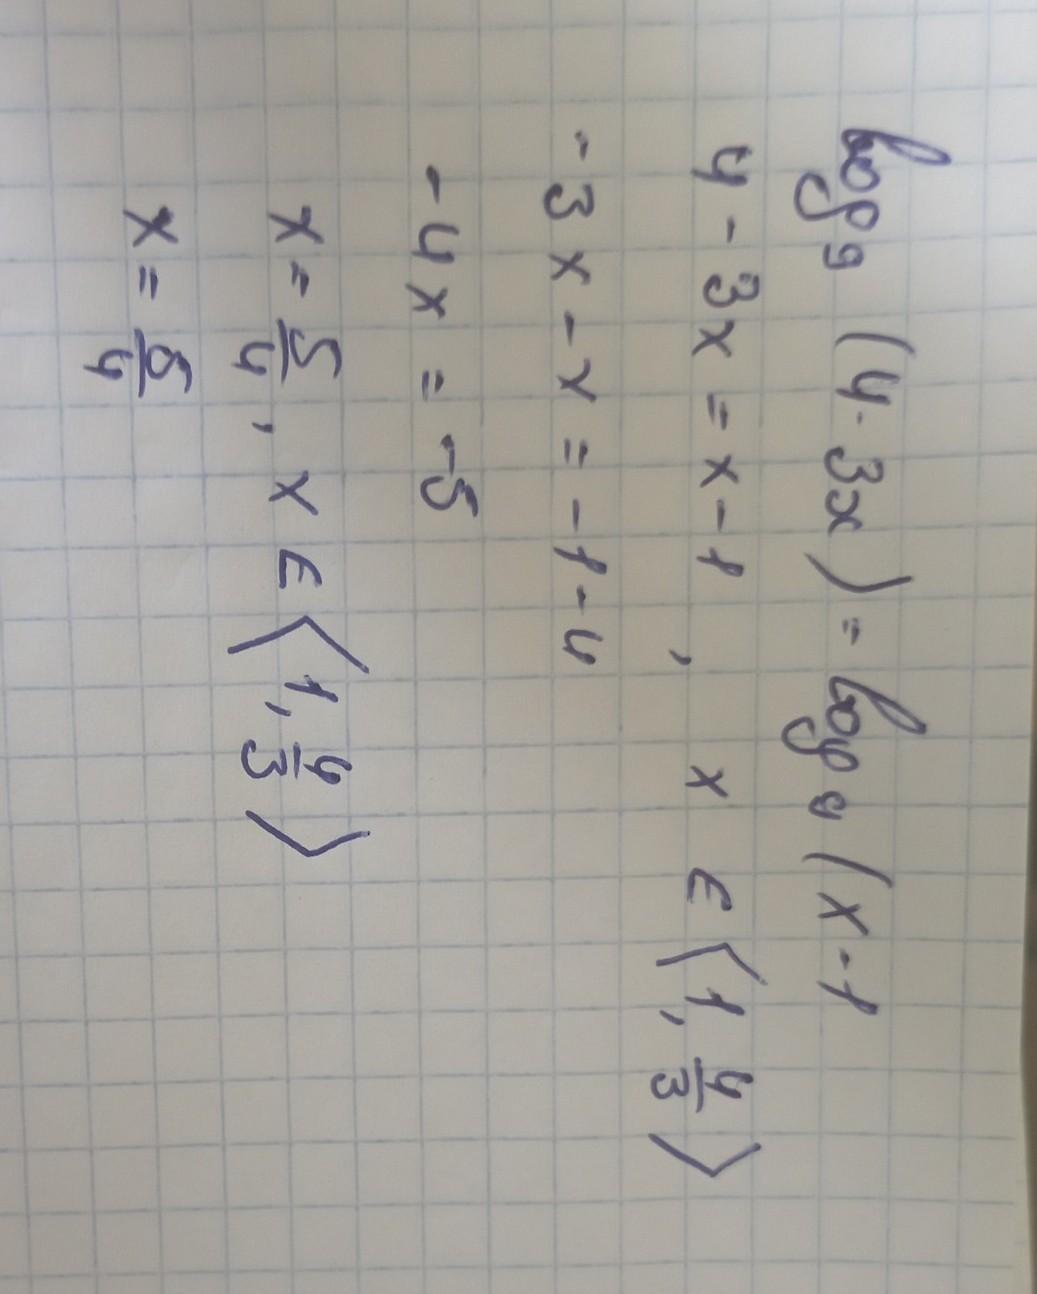 log₉ (4-3x) = log₉ (x-1
4-3x = x-1 , x ∈ ⟨1, 4/3⟩
-3x-x = -1-4
-4x = -5
x = 5/4, x ∈ ⟨1, 4/3⟩
x = 5/4